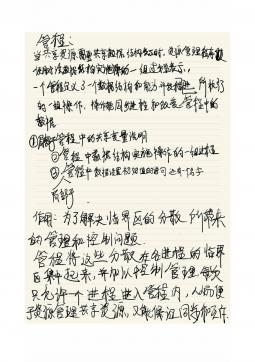 管程:
当共享资源用共享数据结构表示时,资源管理程序可
使用对该数据结构实施操作的一组过程表示。
一个管程定义了一个数据结构和能为并发进程所执行
的一组操作,操作能同步进程和改变管程中的
数据
①局部于管程中的共享变量说明
②管程中数据结构实施操作的一组过程
③管程中数据设置初始值的语句 还有一名字
局部于
作用:为了解决临界区的分散所带来
的管理和控制问题.
管程将这些分散在各进程的临界
区集中起来,并加以控制管理,每次
只允许一个进程进入管程内,从而便
于资源管理共享资源,又能保证同步和互斥